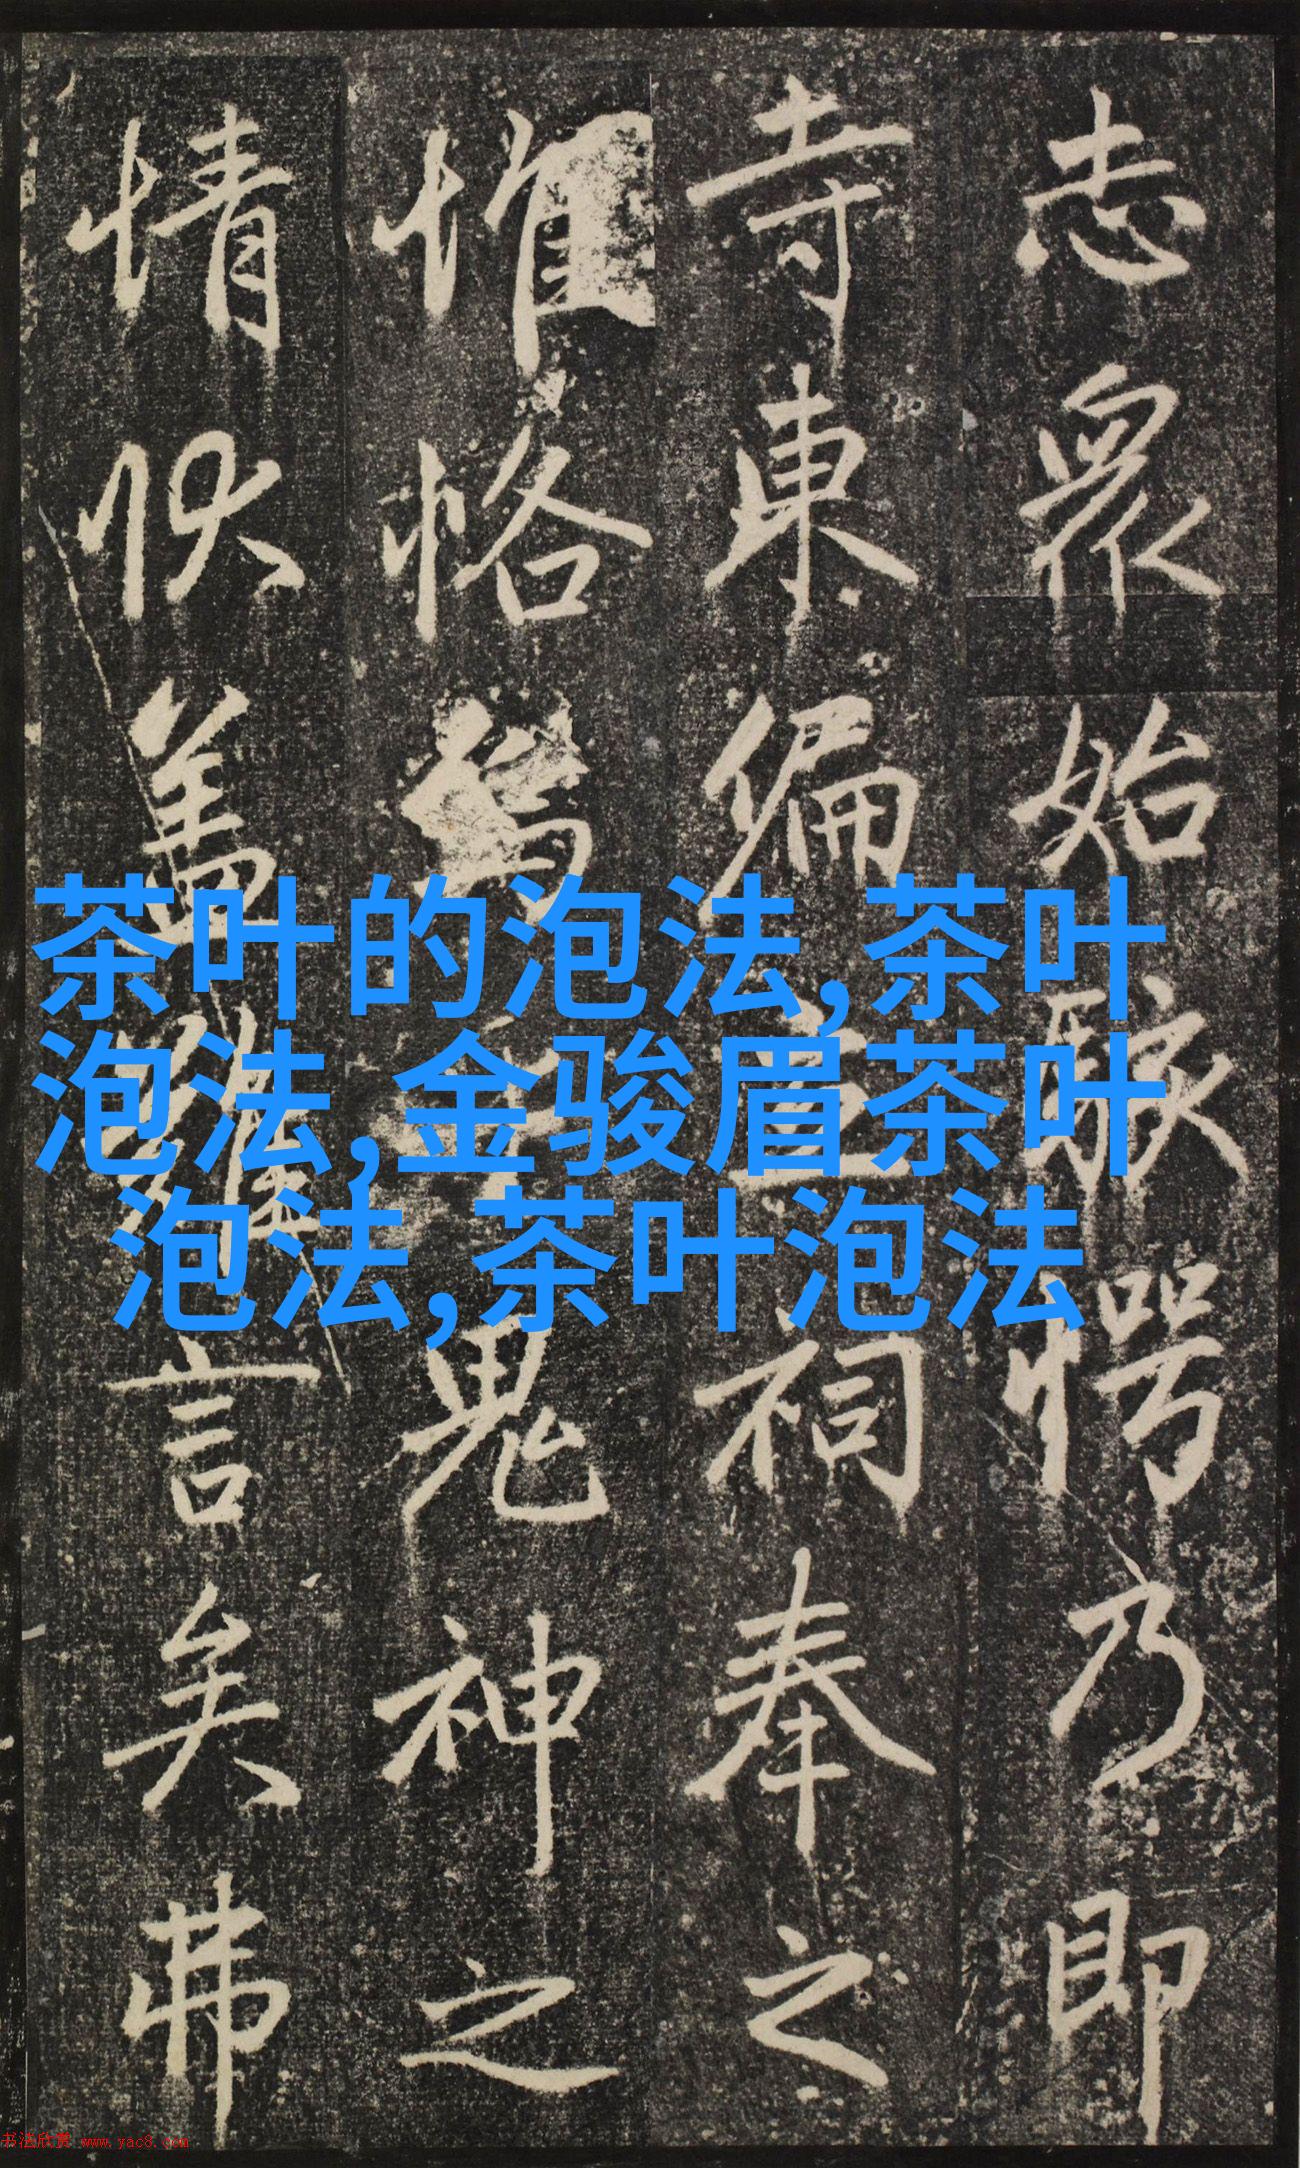 志衆始駭愕乃即
寺東偏立祠奉之
惟恪為鬼神之
情状盖難言矣弗
茶叶的泡法,茶叶
泡法,金骏眉茶叶
泡法,茶叶泡法
书法欣赏 www.yac8.com